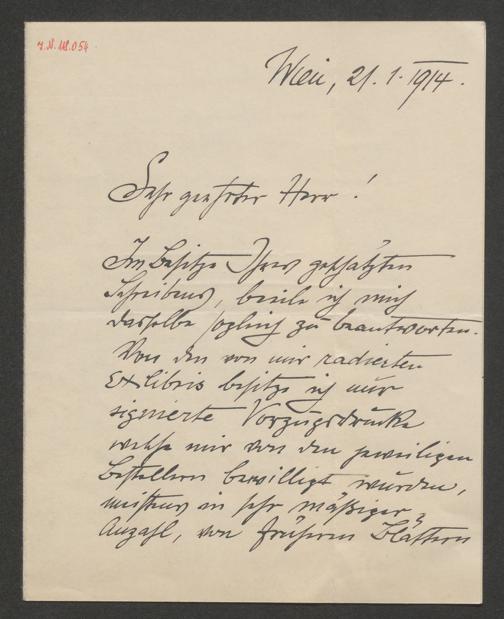 J.N. 118.054
Wien, 21.1.1914.
Sehr geehrter Herr!
Im Besitze Ihres geschätzten
Schreibens, beeile ich mich
dasselbe sogleich zu beantworten.
Von den von mir radierten
Exlibris besitze ich nur
signierte Vorzugsdrucke
welche mir von den jeweiligen
Bestellern bewilligt wurden,
meistens in sehr mäßiger
Anzahl, von früheren Blättern